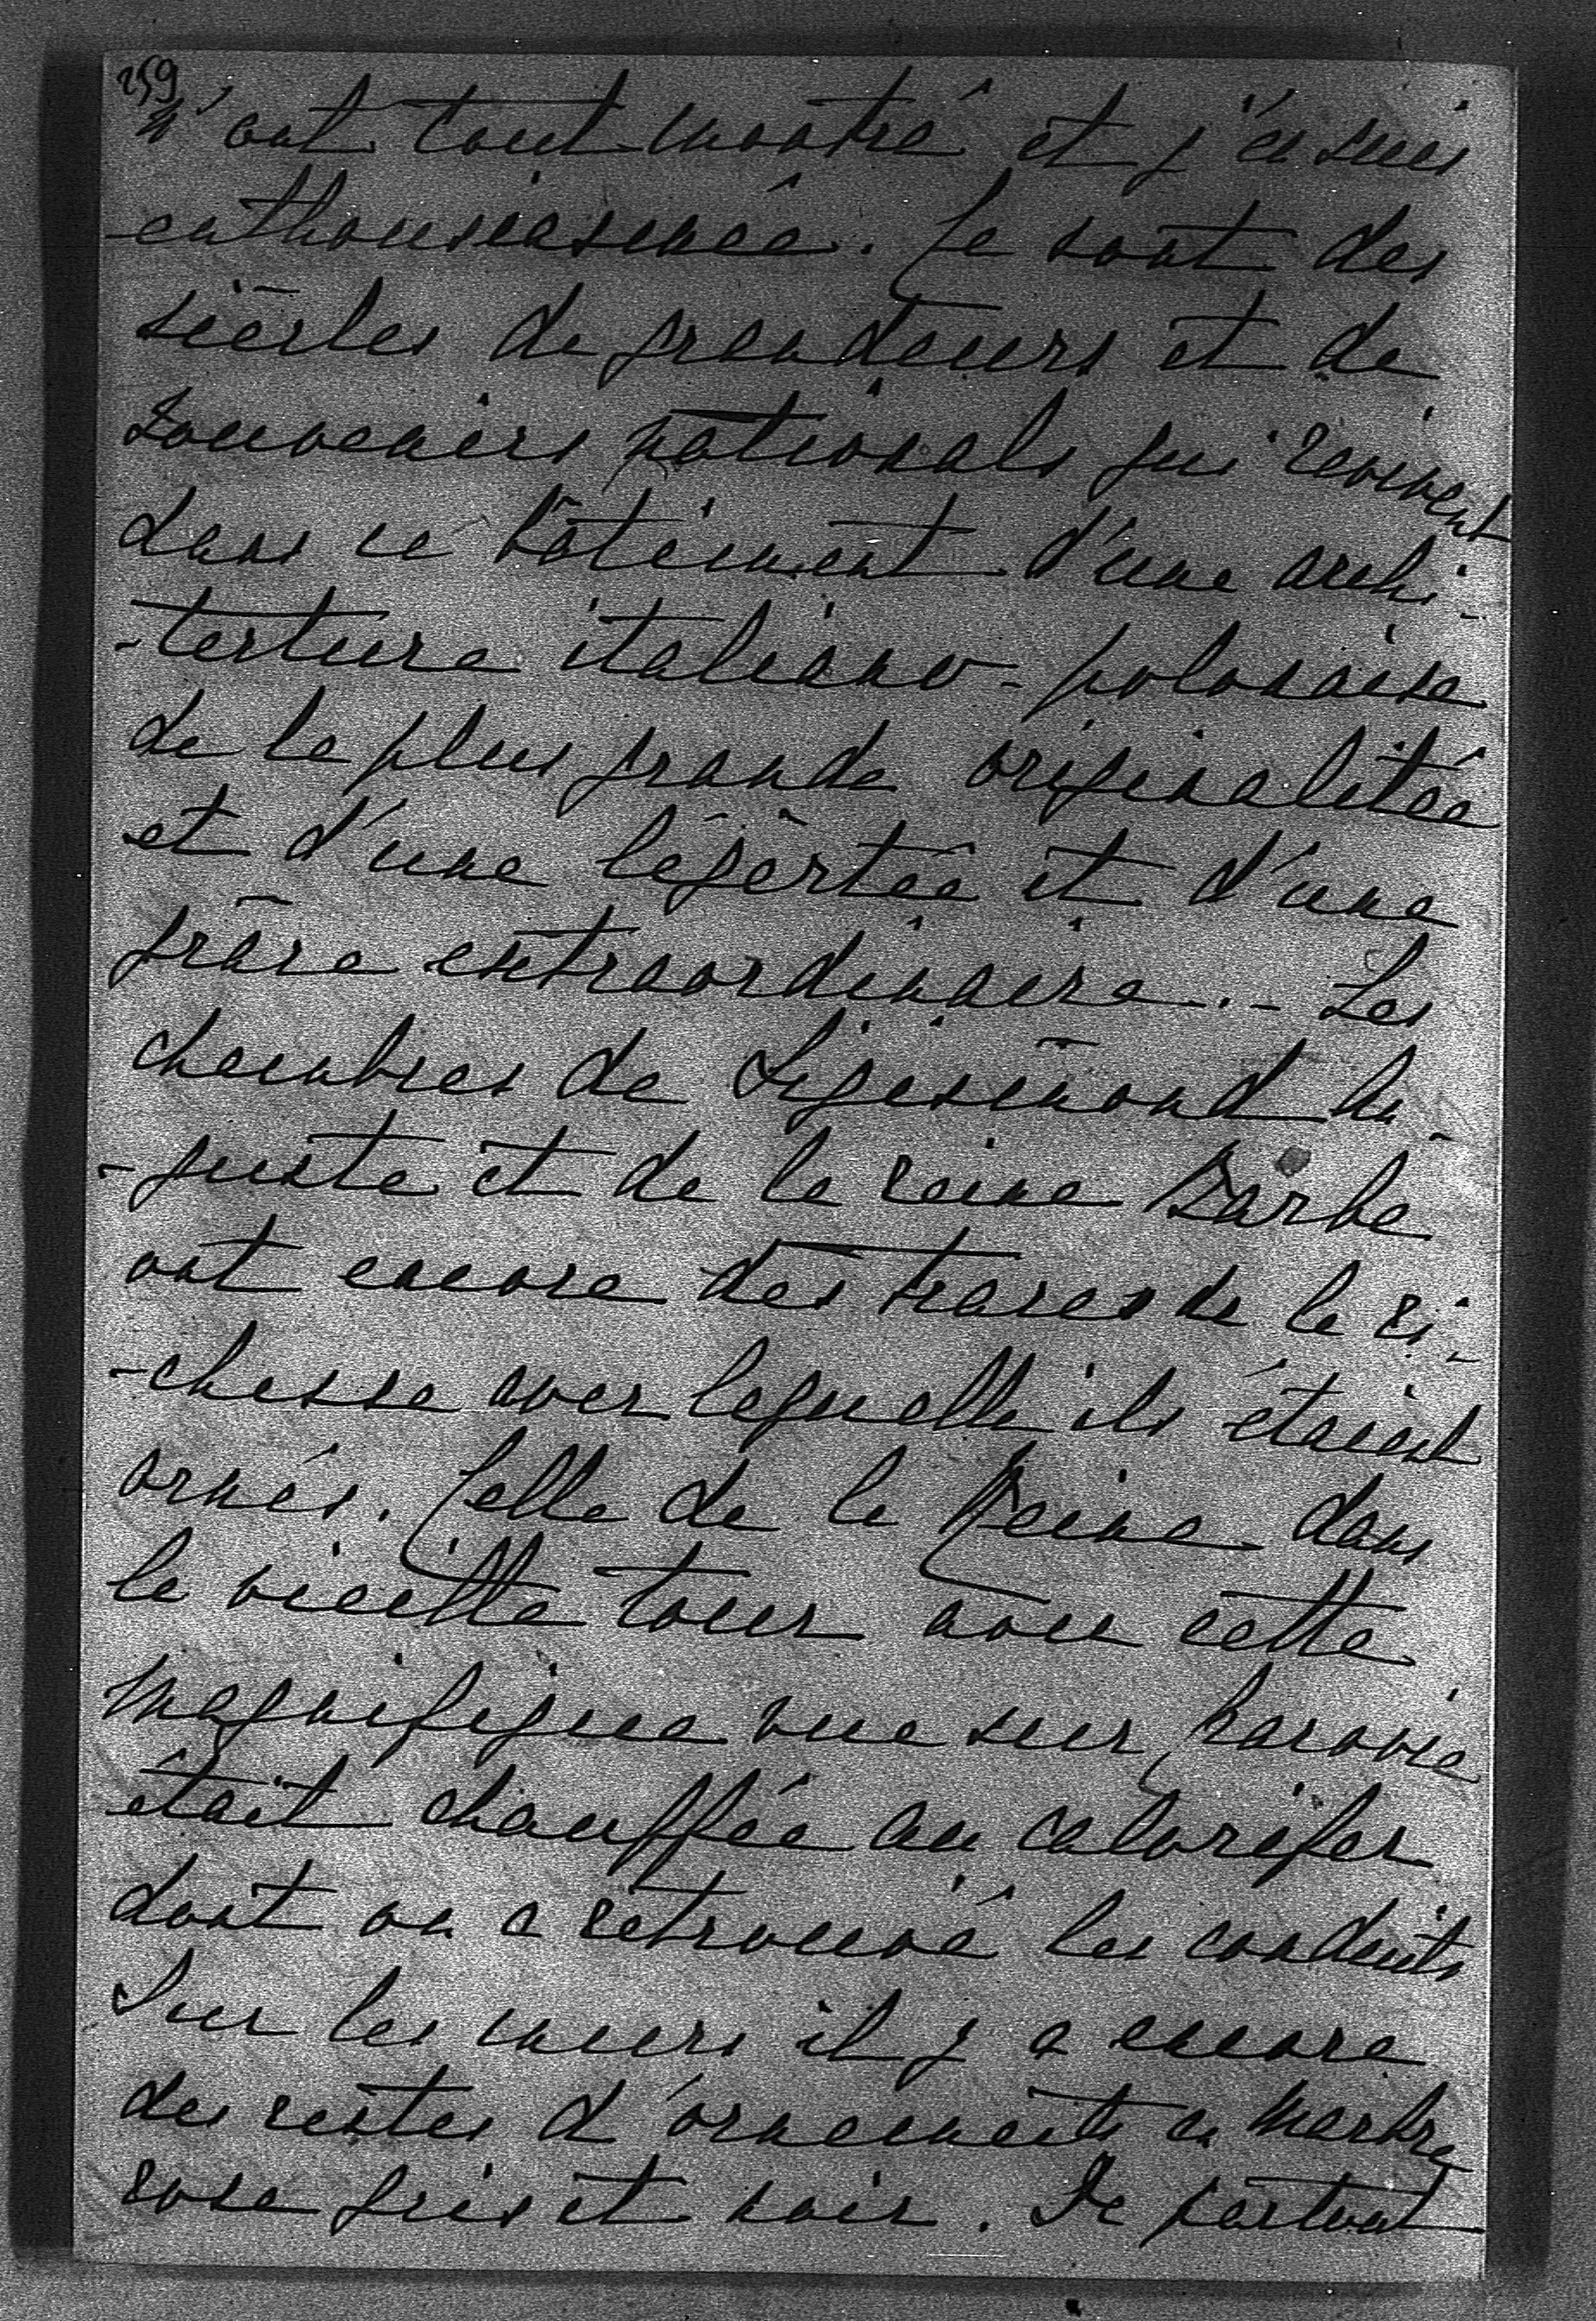 259
m'ont tout montré et j'en suis
enthousiasmée. Ce sont des
siècles de grandeurs et de
souvenirs nationals qui revivent
dans ce bâtiment d'une archi-
-tecture italiano-polonaise
de la plus grande originalitée
et d'une légèrtée et d'une
grâce extraordinaire. - Les
chambres de Sigismond Au-
-guste et de la reine Barbe
ont encore des traces de la ri-
-chesse avec laquelle ils étaient
ornés. Celle de la Reine dans
la vieille tour avec cette
magnifique vue sur Cracovie
était chauffée au calorifer
dont on a retrouvé les conduits
Sur les murs il y a encore
des restes d'ornements en marbre
rose gris et noir. De partout